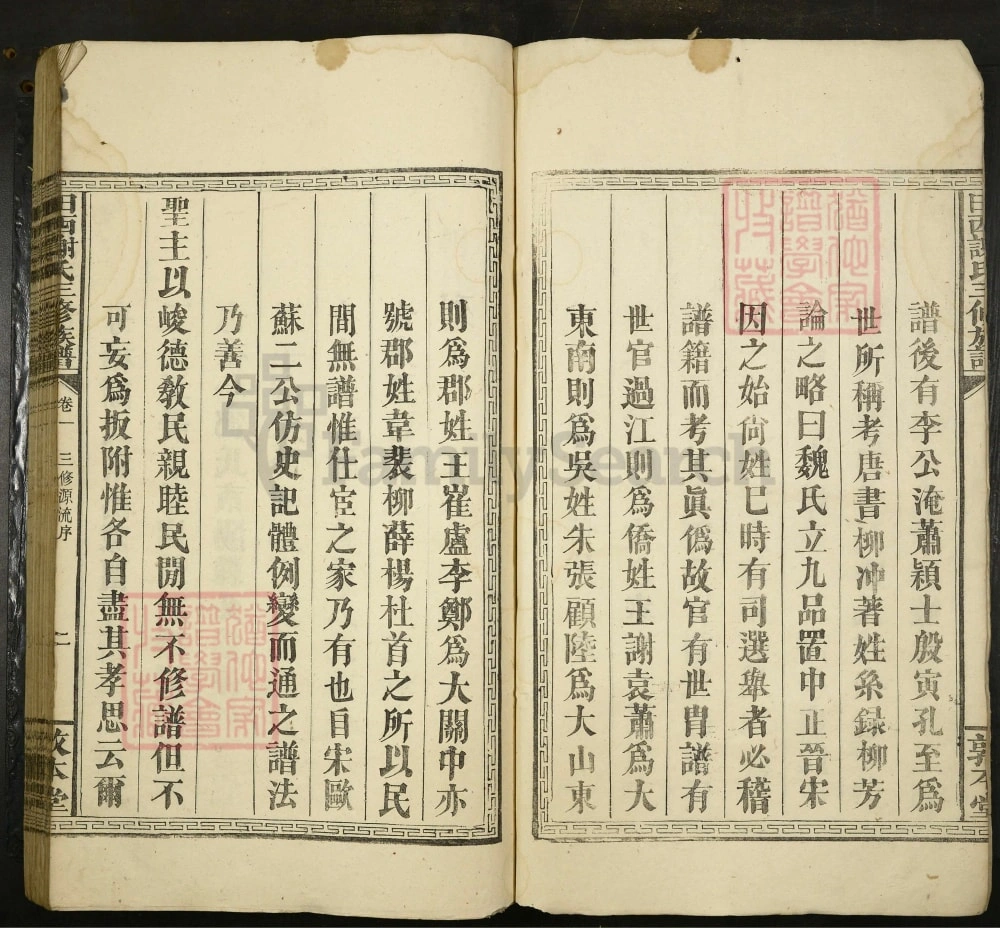 譜後有李公淹蕭穎士殷寅孔至爲
世所稱考唐書柳冲著姓系録柳芳
論之略曰魏氏立九品置中正晉宋
因之始尙姓巳時有司選舉者必稽
譜籍而考其眞僞故官有世胄譜有
世官過江則爲僑姓王謝袁蕭爲大
東南則爲吳姓朱張顧陸爲大山東
則爲郡姓王崔盧李鄭爲大關中亦
號郡姓韋裴柳薛楊杜首之所以民
間無譜惟仕宦之家乃有也自宋歐
蘇二公仿史記體例變而通之譜法
乃善今
聖主以峻德敎民親睦民閒無不修譜但不
可妄爲扳附惟各自盡其孝思云爾
田西謝氏三修族譜
卷一
三修源流序
二
敦本堂
FamilySearch